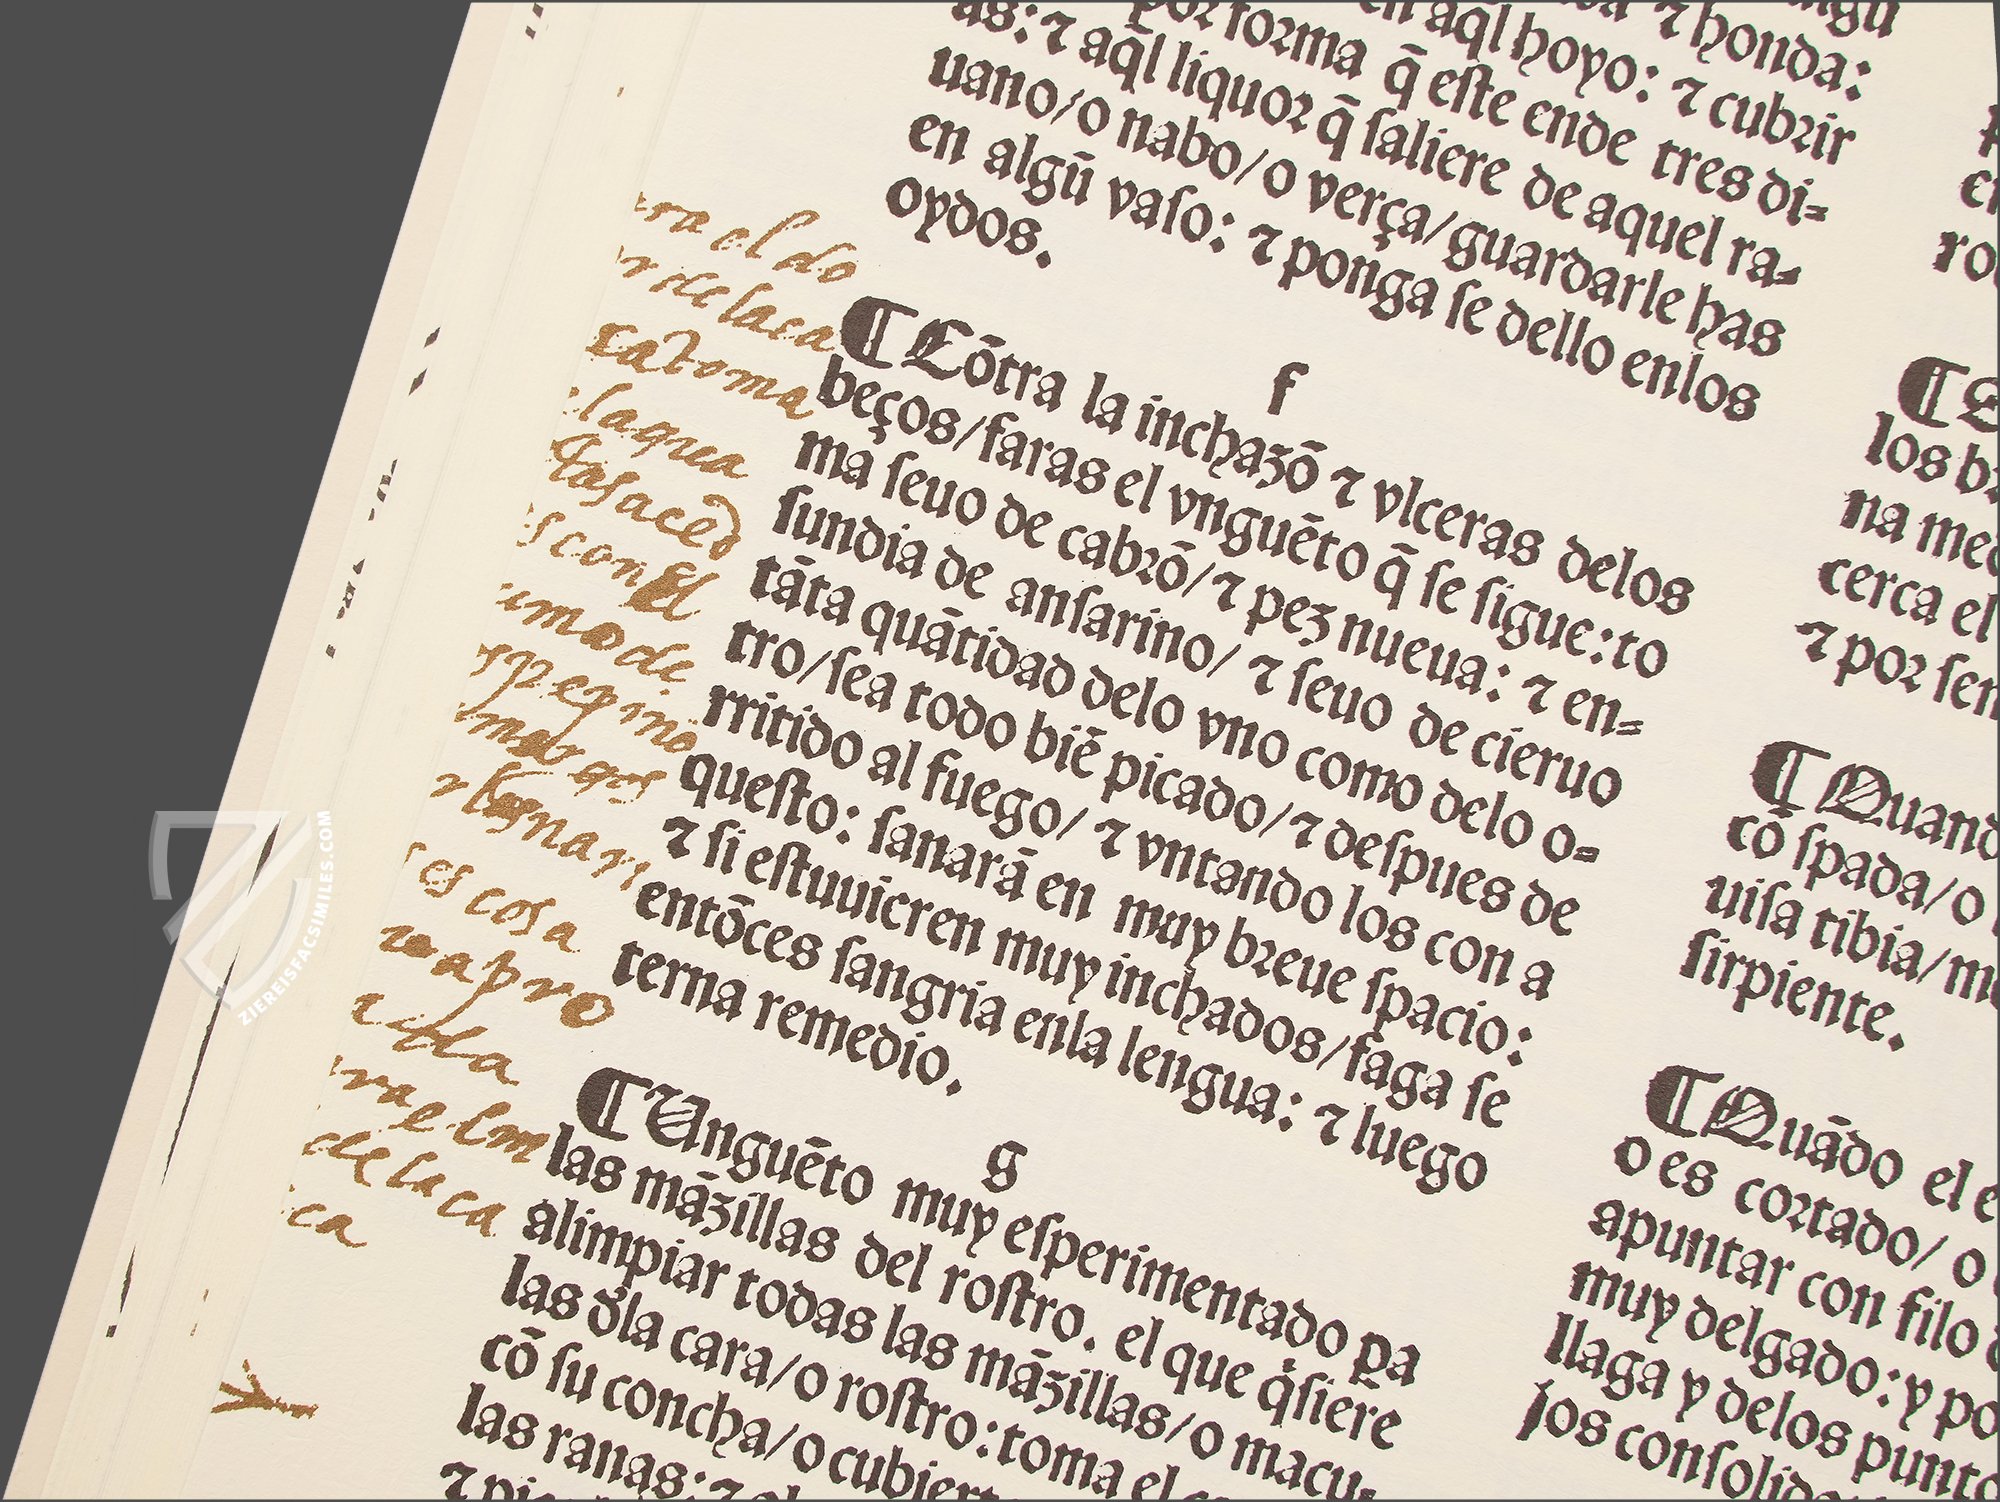 por forma q̄ este ende tres di=
as: ⁊ aq̄l liquor q̄ saliere de aquel ra=
uano/o nabo/o verça/guardarle has
en algū vaso: ⁊ ponga se dello enlos
oydos.
f
¶ Cōtra la inchazō ⁊ vlceras delos
beços/faras el vnguēto q̄ se sigue: to
ma seuo de cabrō/⁊ pez nueua: ⁊ en=
sundia de ansarino/ ⁊ seuo de cieruo
tāta quātidad delo vno como delo o=
tro/sea todo biē picado/⁊ despues de
rritido al fuego/ ⁊ vntando los con a
questo: sanarā en muy breue spacio:
⁊ si estuuieren muy inchados/faga se
entōces sangria enla lengua: ⁊ luego
terna remedio.
g
¶ Unguēto muy esperimentado pa
las māzillas del rostro. el que q̇sierē
alimpiar todas las māzillas/o macu=
las đla cara/o rostro: toma el
cō su concha/o cubiert
las ranas: ⁊
ra el do
r de la ca
ca toma
el agua
es con el
umo de
pepino
amargos
es cosa
aprо
ra el
de la ca
ca
los b
na me
cerca el
⁊ por sen
¶ Quand
cō spada/o
uisa tibia/m
sirpiente.
¶ Quādo el e
o es cortado/ o
apuntar con filo
muy delgado: y po
llaga y delos punto
jos consolid
ZIEREISFACSIMILES.COM